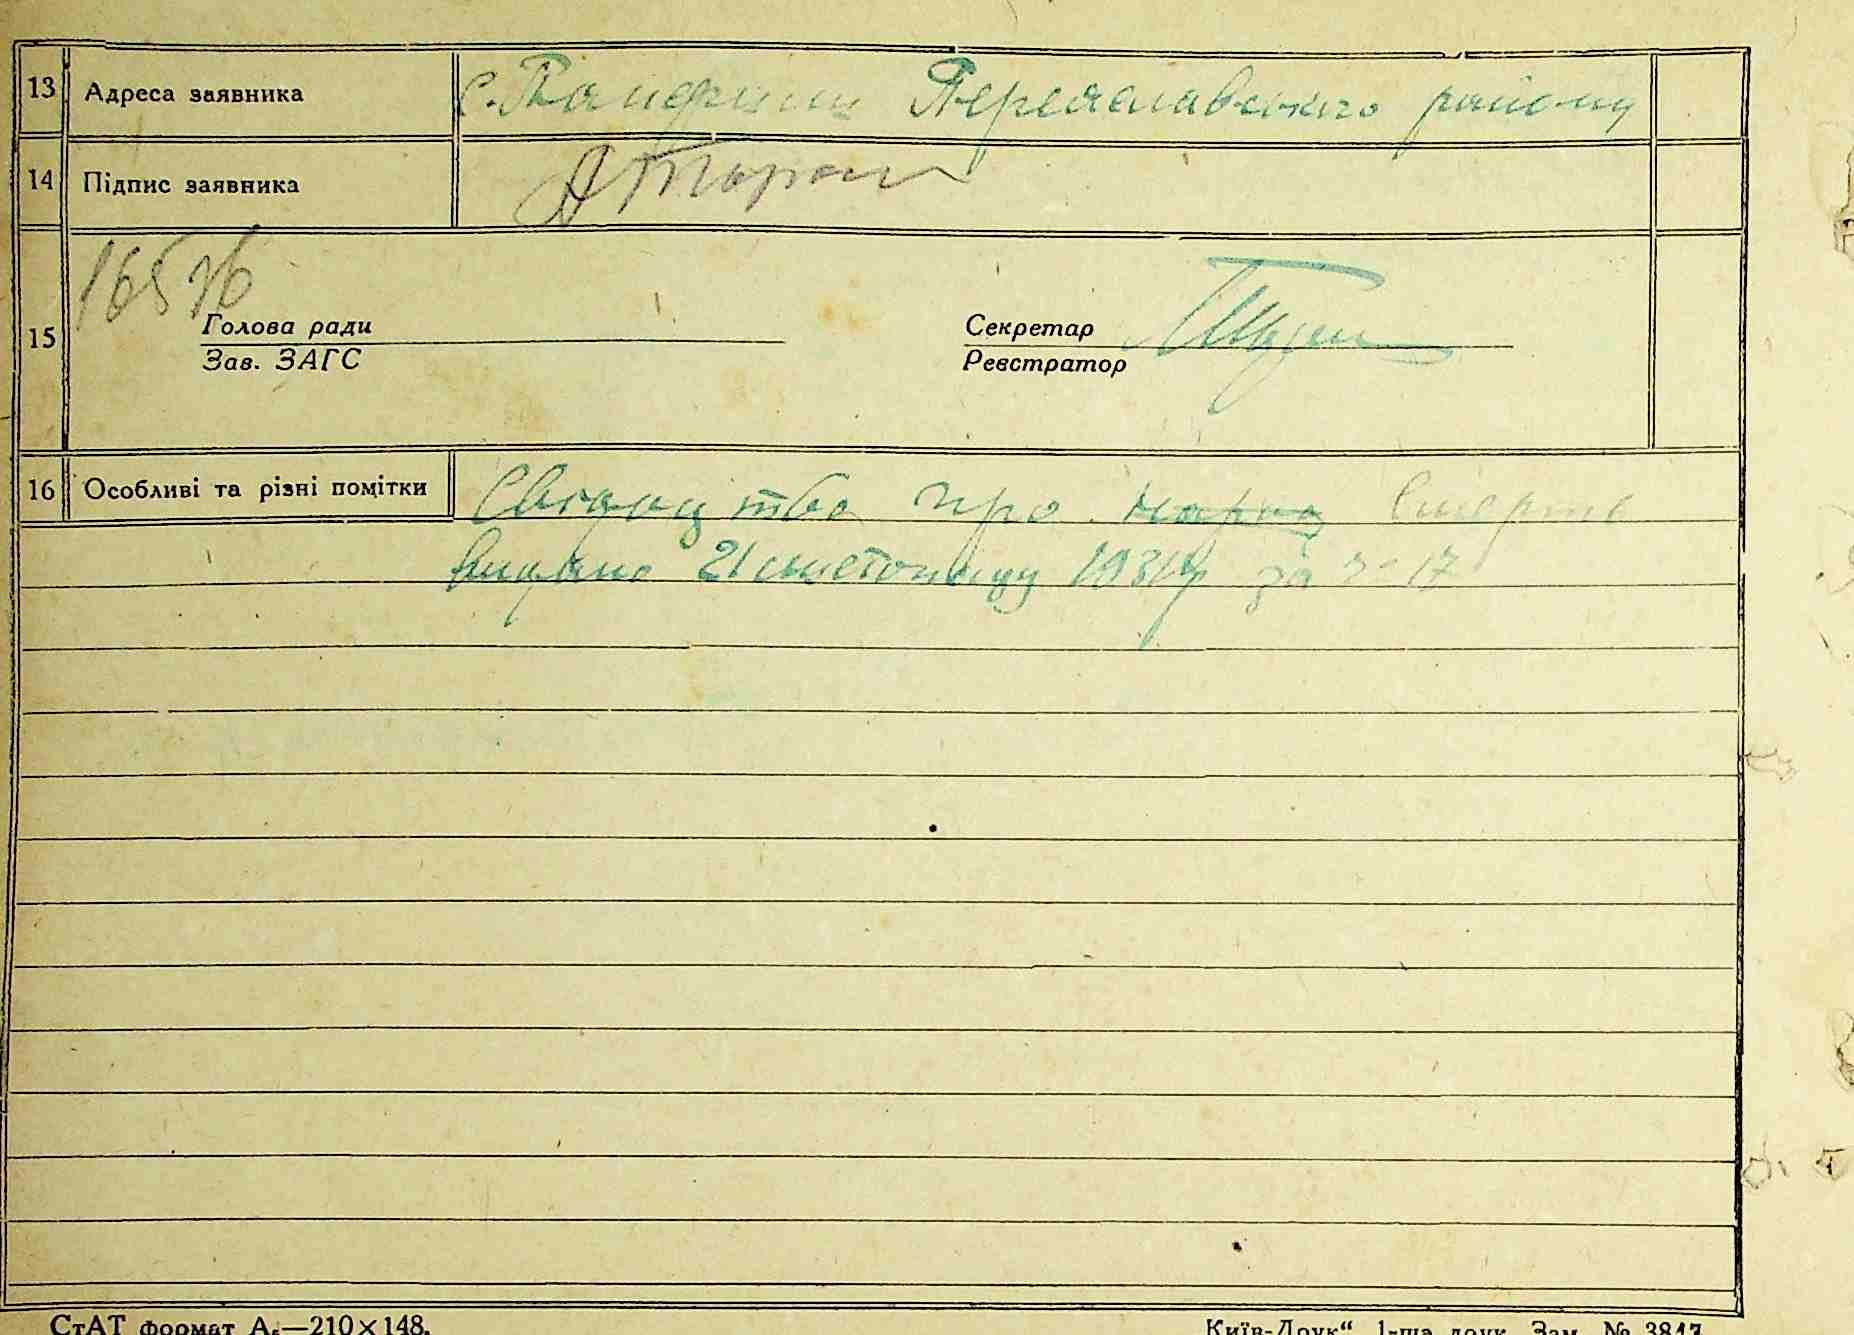 13 Адреса заявника с. Помоклі Переяславського району
14 Підпис заявника А Таран
165 зв
15 Голова ради Секретар
Зав. ЗАГС Реєстратор
16 Особливі та різні помітки Свідоцтво про народ смерть
видано 21 листопаду 1931 р за № 17
СтАТ формат А₅—210×148.
Київ-Друк“ 1-ша друк. Зам. № 3817